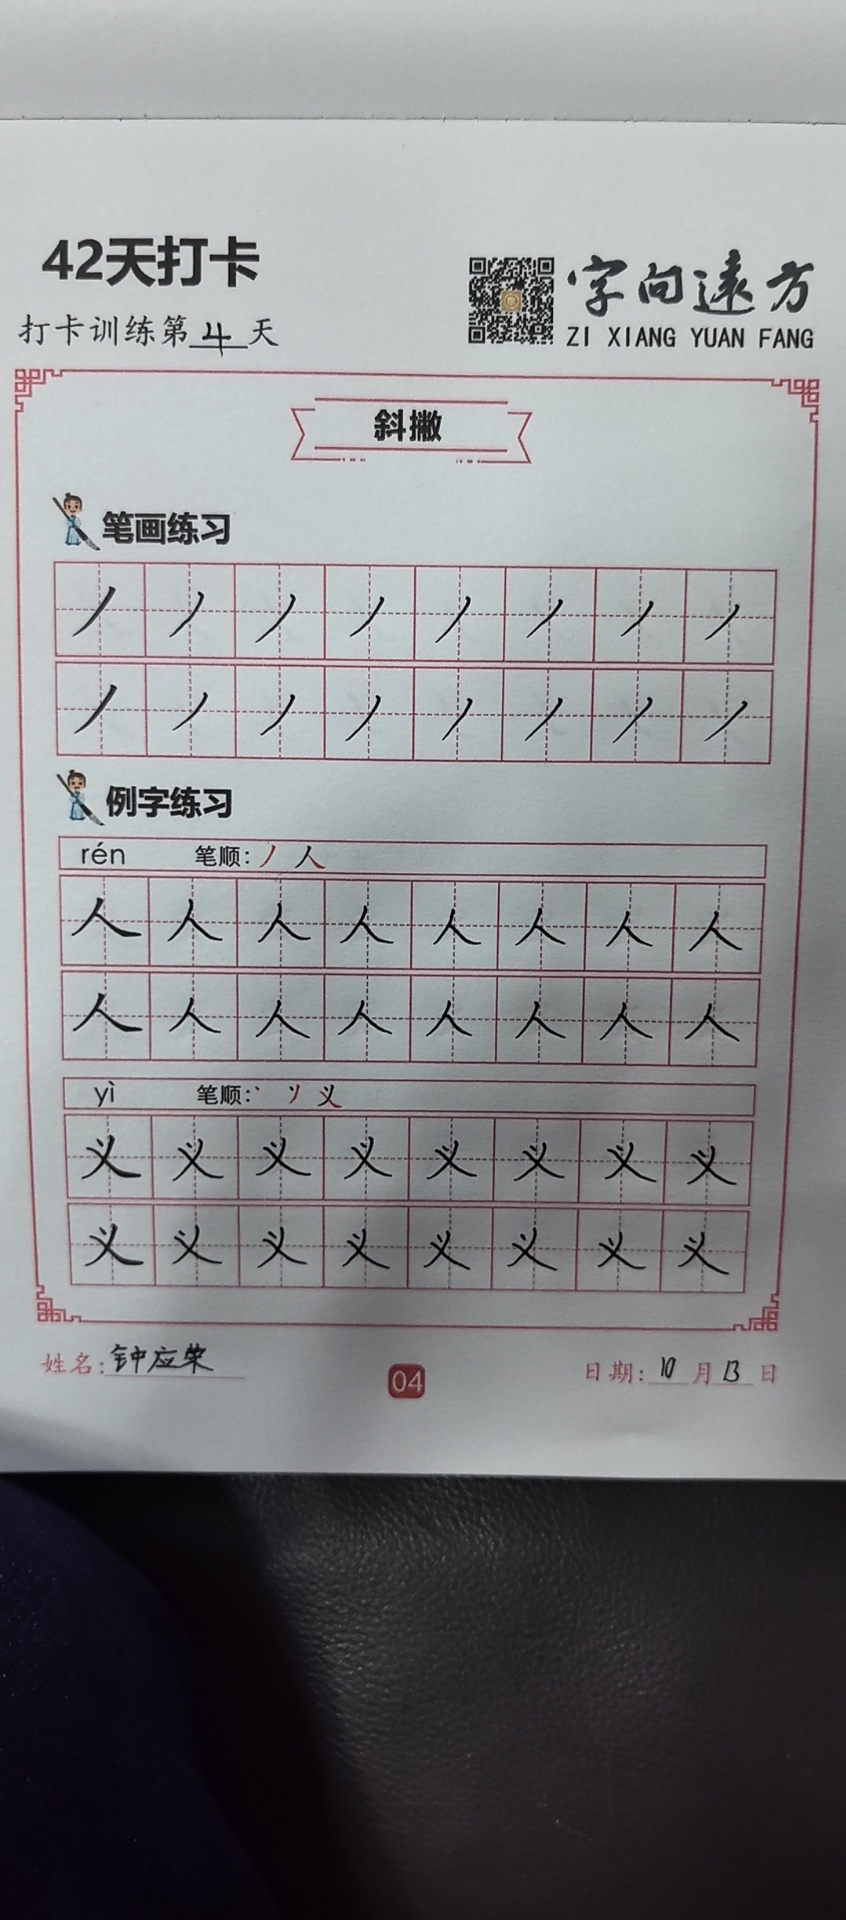 42天打卡
字向遠方
打卡训练第4天
ZI XIANG YUAN FANG
斜撇
笔画练习
丿丿丿丿丿丿丿丿
丿丿丿丿丿丿丿丿
例字练习
rén 笔顺:丿 人
人人人人人人人人
人人人人人人人人
yì 笔顺:丶 丷 义
义义义义义义义义
义义义义义义义义
姓名:钟应荣
04
日期:10月13日